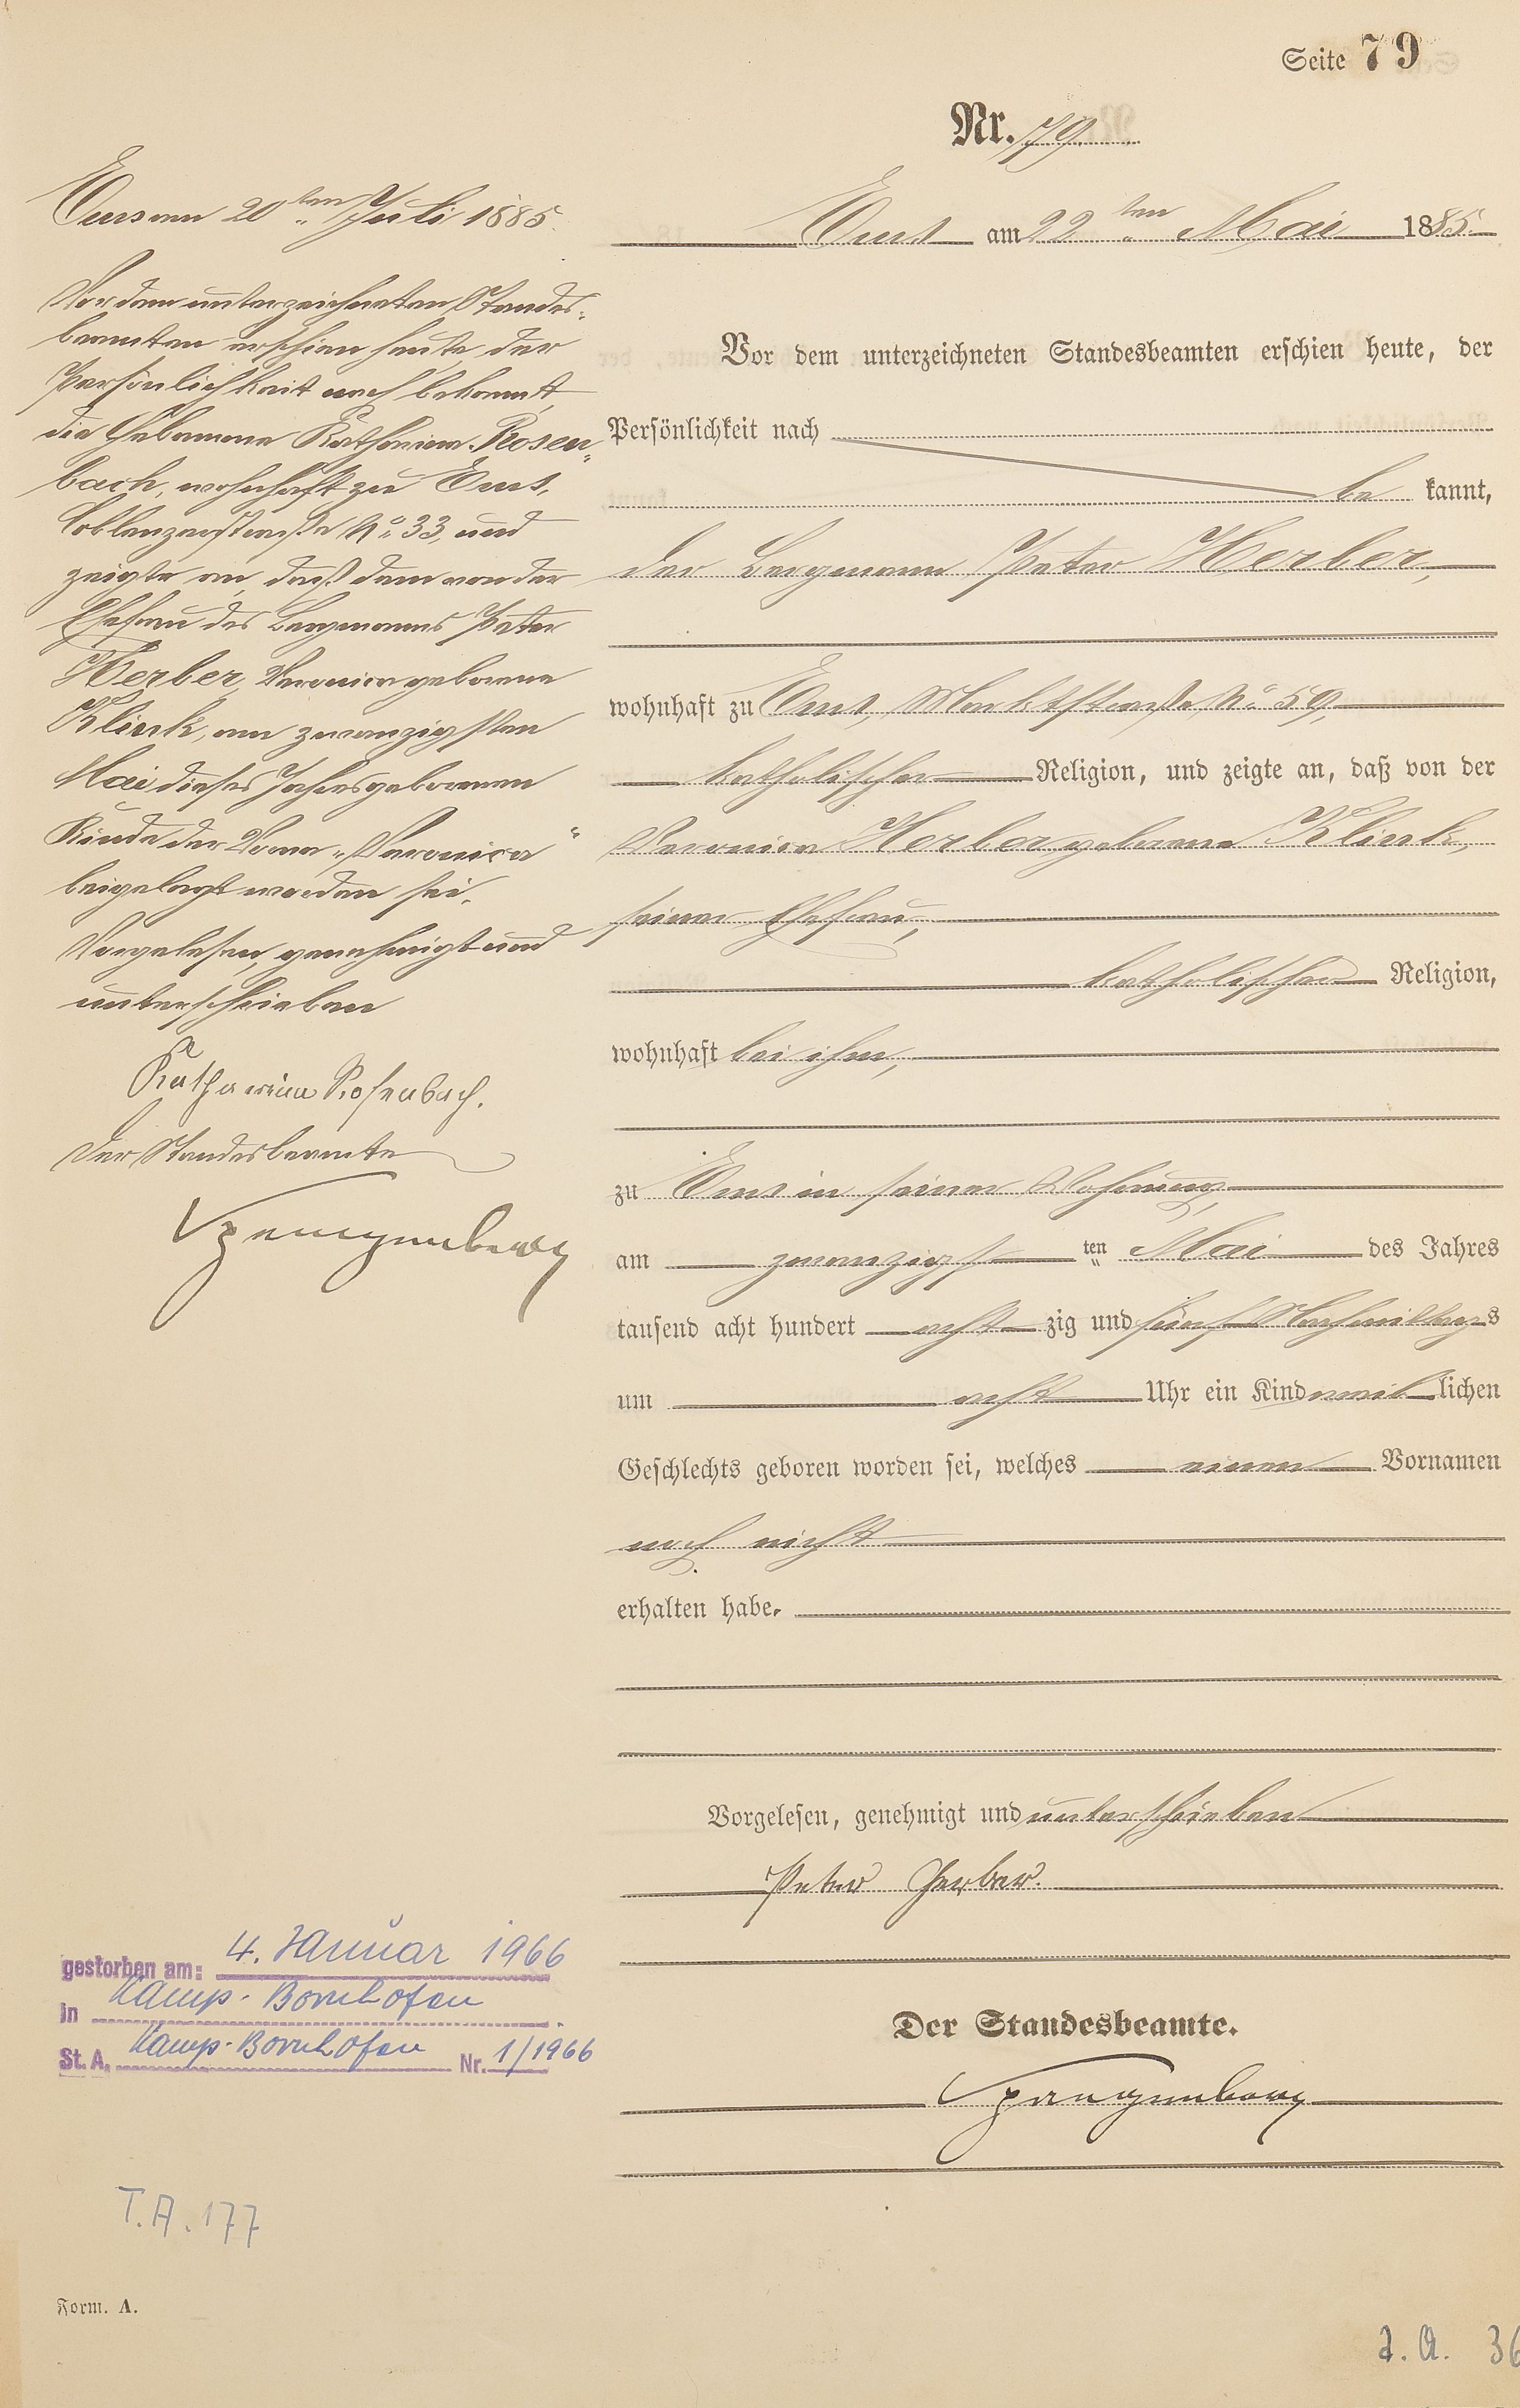 Seite 79
Nr. 79.
Ems am 20ten Juli 1885.
Vor dem unterzeichneten Standes-
beamten erschien heute, der
Persönlichkeit nach bekannt,
die Hebamme Katharina Rosen-
bach, wohnhaft zu Ems,
Coblenzerstraße No. 33, und
zeigte an, daß dem von der
Ehefrau des Bergmanns Peter
Herber, Veronica geborene
Klink, am zwanzigsten
Mai dieses Jahres geborenen
Kinde der Vorna „Veronica“
beigelegt worden sei.
Vorgelesen, genehmigt und
unterschrieben
Katharina Rosenbach.
Der Standesbeamte
Spangenberg
Ems am 22ten Mai 1885.
Vor dem unterzeichneten Standesbeamten erschien heute, der
Persönlichkeit nach
be kannt,
der Bergmann Peter Herber,
wohnhaft zu Ems, Marktstraße No. 59,
katholischer Religion, und zeigte an, daß von der
Veronica Herber geborene Klink,
seiner Ehefrau,
katholischer Religion,
wohnhaft bei ihm,
zu Ems in seiner Wohnung,
am zwanzigsten ten Mai des Jahres
tausend acht hundert acht zig und fünf Nachmittags
um acht Uhr ein Kind weib lichen
Geschlechts geboren worden sei, welches einen Vornamen
noch nicht
erhalten habe.
Vorgelesen, genehmigt und unterschrieben
Peter Herber.
Der Standesbeamte.
Spangenberg
gestorben am: 4. Januar 1966
in Kamp-Bornhofen.
St. A. Kamp-Bornhofen Nr. 1/1966
T.A. 177
Form. A.
a. A. 36